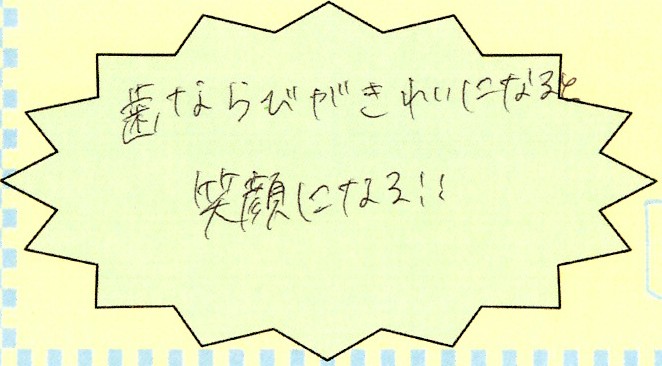 歯ならびがきれいになると
笑顔になる!!